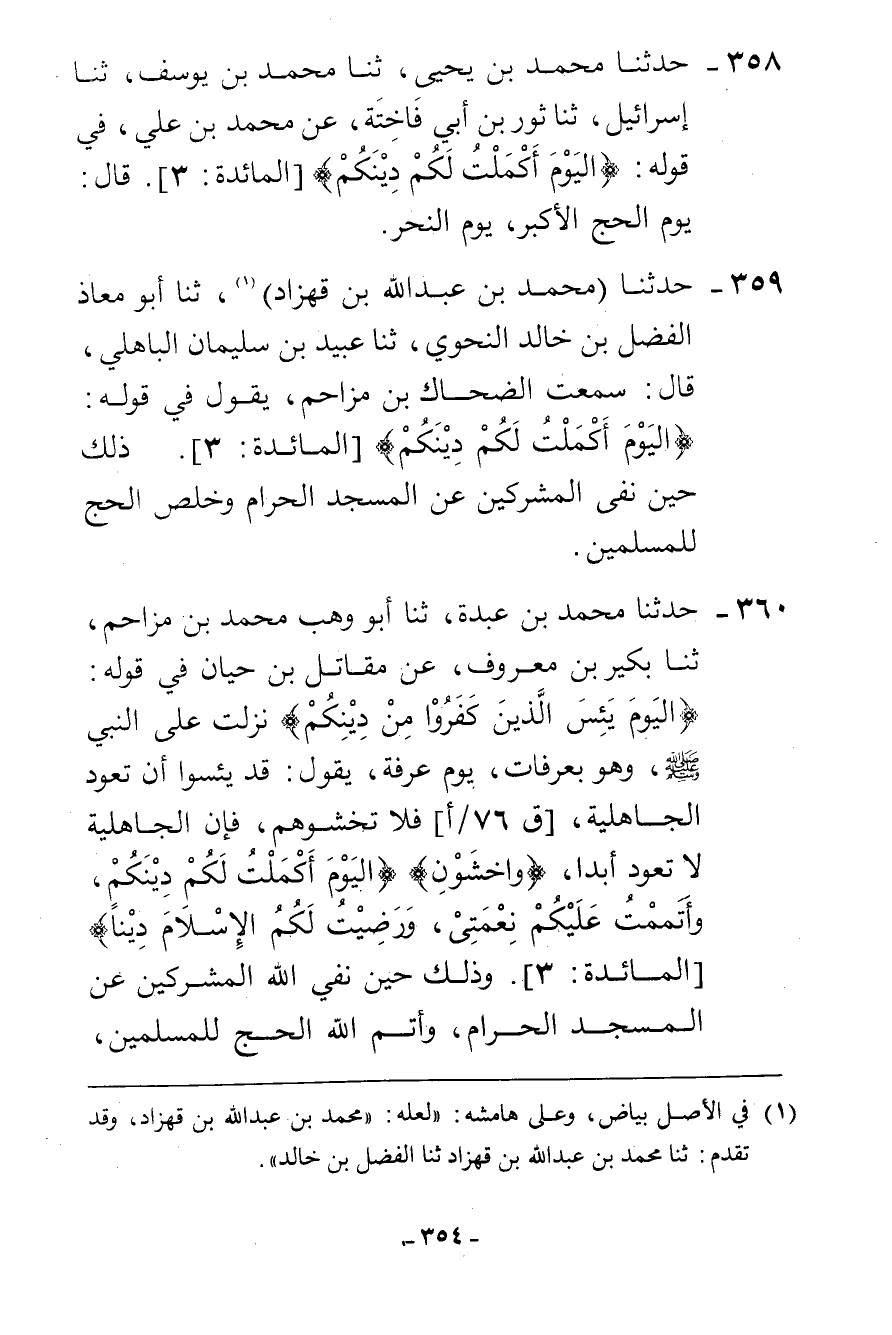 ٣٥٨ - حدثنـا محمـد بن يحيى، ثنـا محمـد بن يوسف، ثنـا
إسرائيل، ثنا ثور بن أبي فَاخِتَة، عن محمد بن علي، في
قوله: ﴿اليَوْمَ أَكْمَلْتُ لَكُمْ دِيْنَكُمْ﴾ [المائدة: ٣]. قال:
يوم الحج الأكبر، يوم النحر.
٣٥٩ - حدثنـا (محمـد بن عبـدالله بن قهزاد)(١)، ثنا أبو معاذ
الفضل بن خالد النحوي، ثنا عبيد بن سليمان الباهلي،
قال: سمعت الضحـاك بن مزاحم، يقـول في قولـه:
﴿اليَوْمَ أَكْمَلْتُ لَكُمْ دِيْنَكُمْ﴾ [المـائـدة: ٣]. ذلك
حين نفى المشركين عن المسجد الحرام وخلص الحج
للمسلمين.
٣٦٠ - حدثنا محمد بن عبدة، ثنا أبو وهب محمد بن مزاحم،
ثنـا بكير بن معـروف، عن مقـاتـل بن حيان في قوله:
﴿اليَومَ يَئِسَ الَّذينَ كَفَرُوْا مِنْ دِيْنِكُمْ﴾ نزلت على النبي
ﷺ، وهو بعرفات، يوم عرفة، يقول: قد يئسوا أن تعود
الجـاهلية، [ق ٧٦/أ] فلا تخشـوهم، فإن الجـاهلية
لا تعود أبدا، ﴿واخشَوْنِ﴾ ﴿اليَوْمَ أَكْمَلْتُ لَكُمْ دِيْنَكُمْ،
وأَتَممْتُ عَلَيْكُمْ نِعْمَتِىْ، وَرَضِيْتُ لَكُمُ الإِسْـلَامَ دِيْناً﴾
[المـائـدة: ٣]. وذلـك حين نفي الله المشـركين عن
المـسجـد الحـرام، وأتـم الله الحـج للمسلمين،
(١) في الأصـل بياض، وعلى هامشه: «لعله: «محمد بن عبدالله بن قهزاد، وقد
تقدم: ثنا محمد بن عبدالله بن قهزاد ثنا الفضل بن خالد».
- ٣٥٤ -